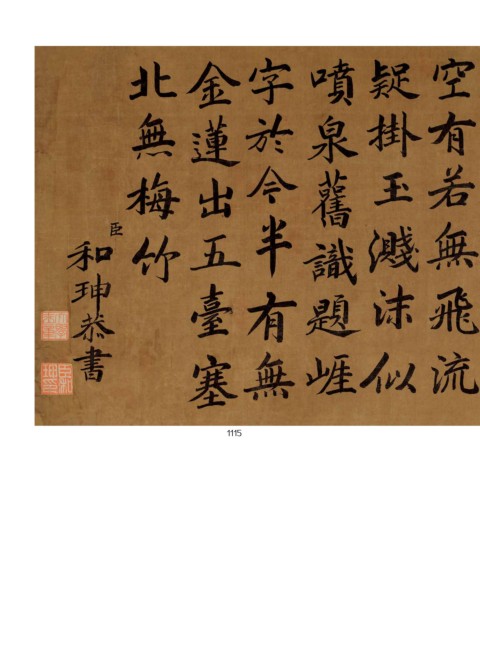 空有若無飛流
疑掛玉濺沫似
噴泉舊識題崕
字於今半有無
金蓮出五臺塞
北無梅竹
臣和珅恭書
1115